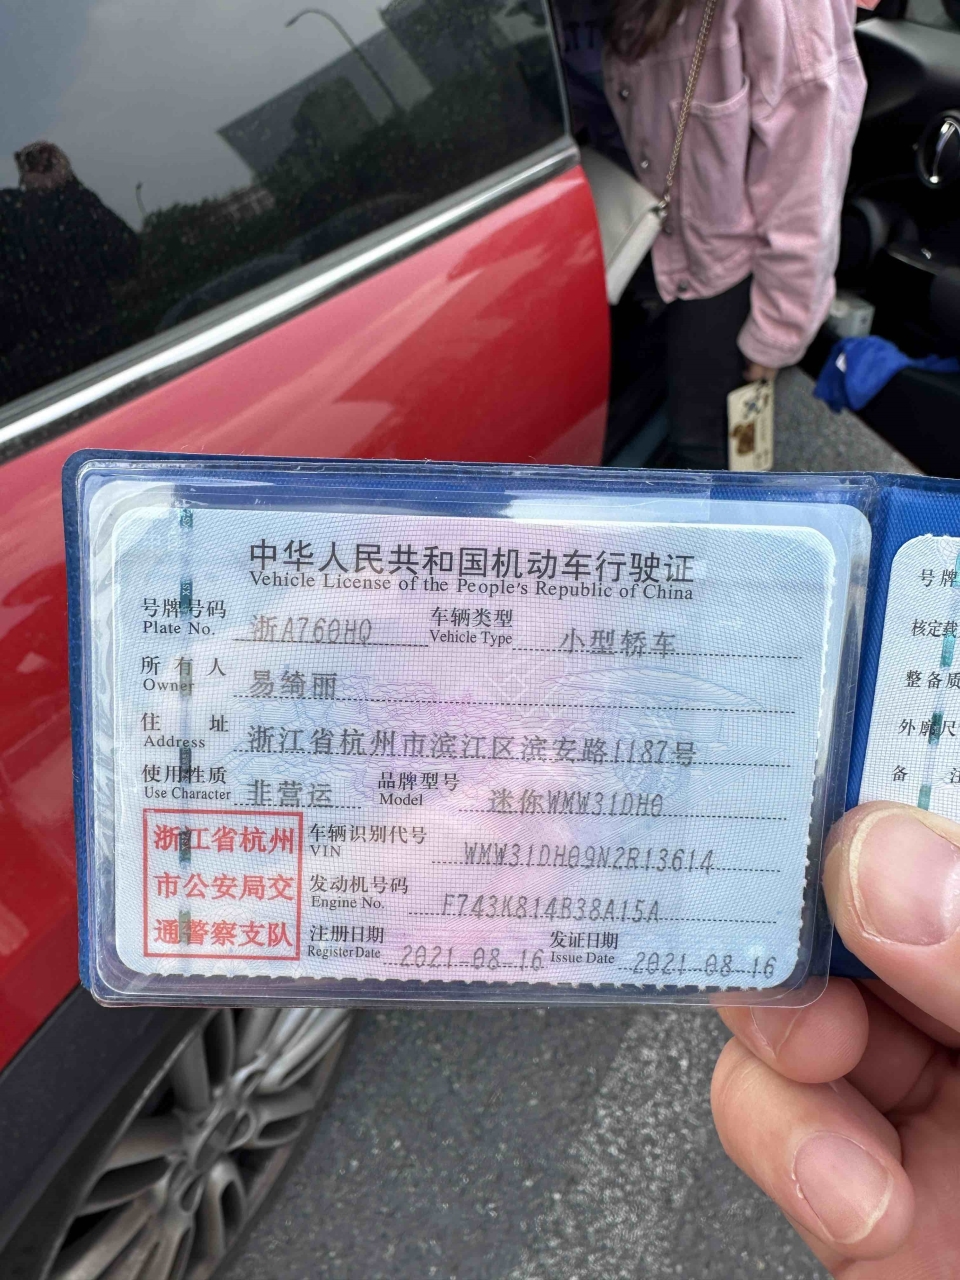 中华人民共和国机动车行驶证
Vehicle License of the People's Republic of China
号牌号码 浙A760HQ 车辆类型 小型轿车
Plate No. Vehicle Type
所有人 易绮丽
Owner
住址 浙江省杭州市滨江区滨安路1187号
Address
使用性质 非营运 品牌型号 迷你WMW31DH0
Use Character Model
浙江省杭州
市公安局交
通警察支队
车辆识别代号 WMW31DH09N2R13614
VIN
发动机号码 F743K814B38A15A
Engine No.
注册日期 2021-08-16 发证日期 2021-08-16
Register Date Issue Date
号牌
核定载
整备质
外廓尺
备注